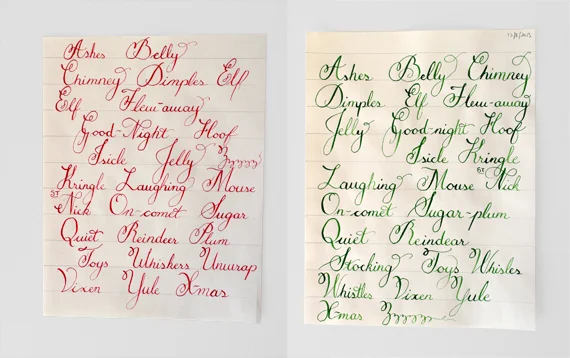 Ashes Belly
Chimney Dimples Elf
Elf Flew-away
Good-Night Hoof
Isicle Jelly Zzzzzz
Kringle Laughing Mouse
ST Nick On-comet Sugar
Quiet Reindeer Plum
Toys Whiskers Unwrap
Vixen Yule X-mas
Ashes Belly Chimney
Dimples Elf Flew-away
Jelly Good-night Hoof
Isicle Kringle
Laughing Mouse ST Nick
On-comet Sugar-plum
Quiet Reindear
Stocking Toys Whisles
Whistles Vixen Yule
X-mas Zzzzzz